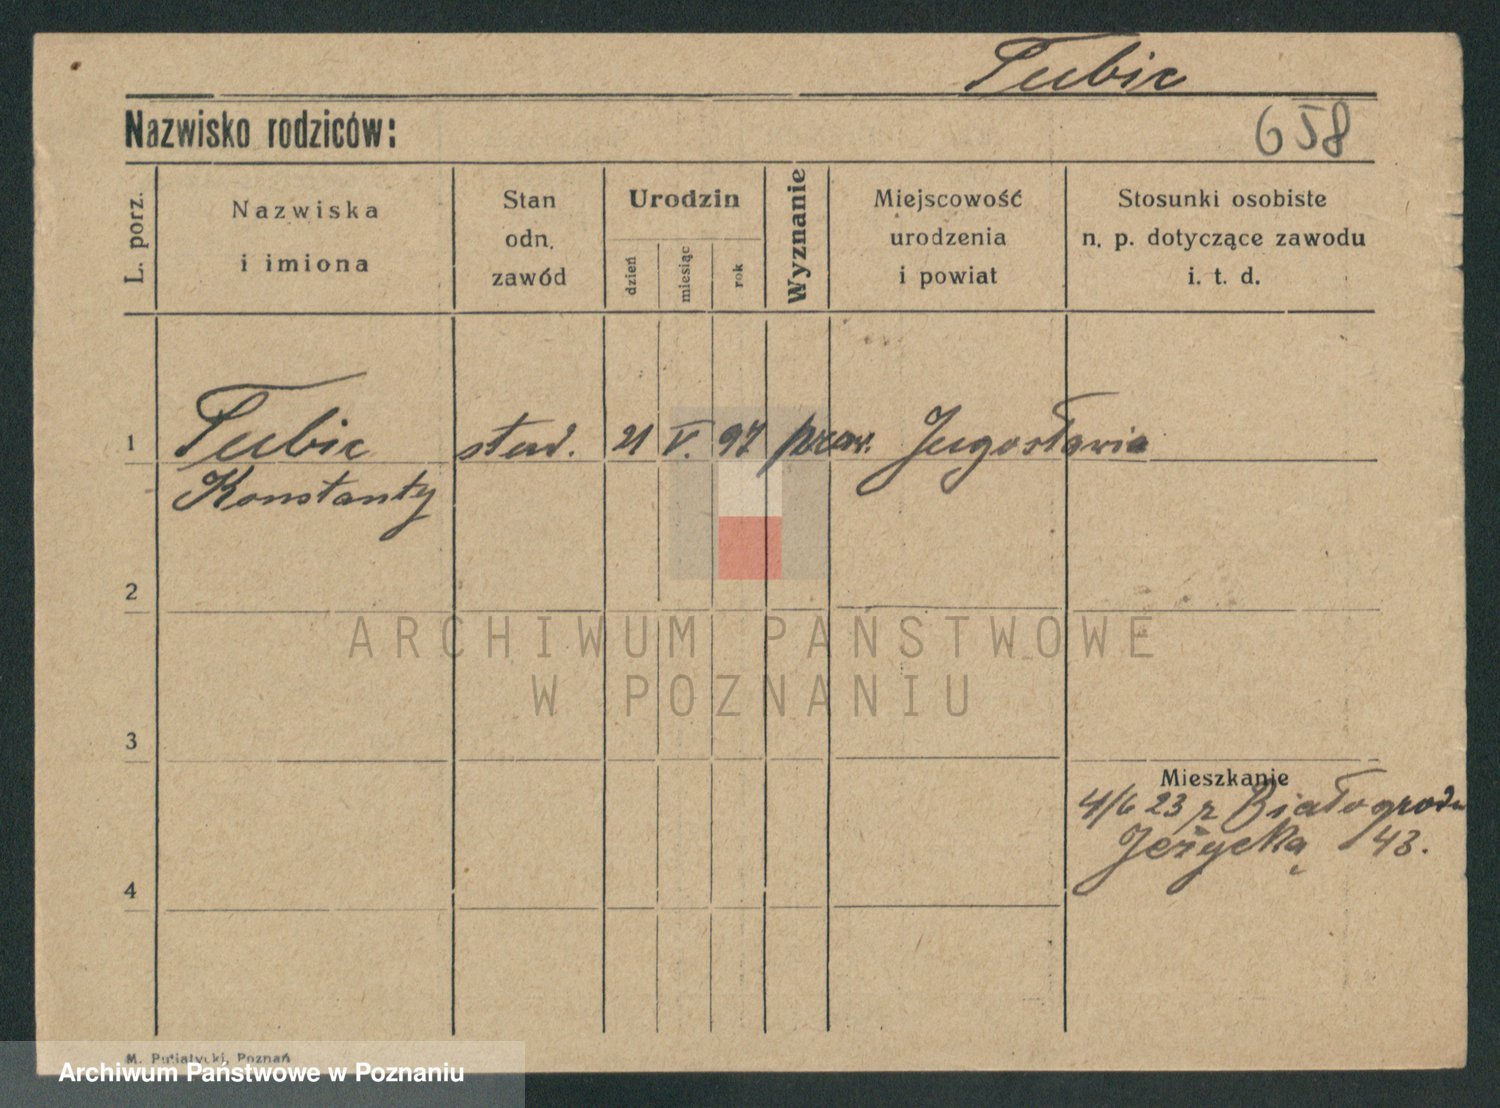 Tubic
Nazwisko rodziców:
658
L. porz.
Nazwiska
i imiona
Stan
odn.
zawód
Urodzin
dzień
miesiąc
rok
Wyznanie
Miejscowość
urodzenia
i powiat
Stosunki osobiste
n. p. dotyczące zawodu
i. t. d.
1 Tubic stud. 21 V. 97 praw. Jugosławia
Konstanty
2
ARCHIWUM PAŃSTWOWE
W POZNANIU
3
Mieszkanie
4/6 23 z Białogrodu
Jeżycka 43.
4
M. Putiatycki, Poznań
Archiwum Państwowe w Poznaniu